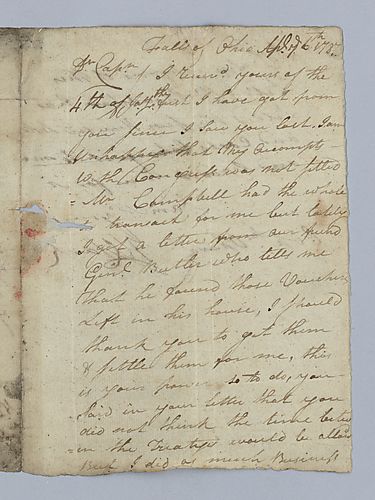 Falls of Ohio Apl 6th 178
Dr Capn
I receivd yours of the
4th of first I have got from
you since I saw you last. I am
unhappy that my Accompts
with Congress was not settled
Mr Campbell had the whole
to transact for me but lately
I got a letter from our friend
Genl. Butler who tells me
that he found those Vouchers
Left in his house, I should
thank you to get them
& settle them for me, this
is your power so to do, you
said in your letter that you
did not think the time
in the Treatys would be allowd
But I did as much Business